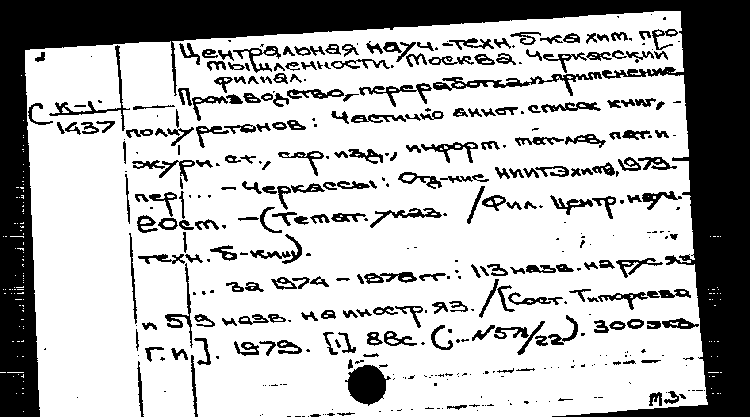 Центральная науч.-техн. б-ка хим. про-
мышленности. Москва. Черкасский
филиал.
Производство, переработка и применение
С К-1 / 1437
полиуретонов: Частично аннот. список книг,
журн. ст., сер. изд., информ. мат-лов, пат. и
пер. ... – Черкассы: Отд-ние НИИТЭхима, 1979. –
20см. – (Темат. указ. / Фил. Центр. науч.-
техн. б-ки).
... за 1974 – 1978 гг.: 113 назв. на рус. яз
и 519 назв. на иностр. яз. / [Сост. Тимофеева
Г.И.]. 1979. [1], 88с. (;...№578/22). 300экз.
М.З.